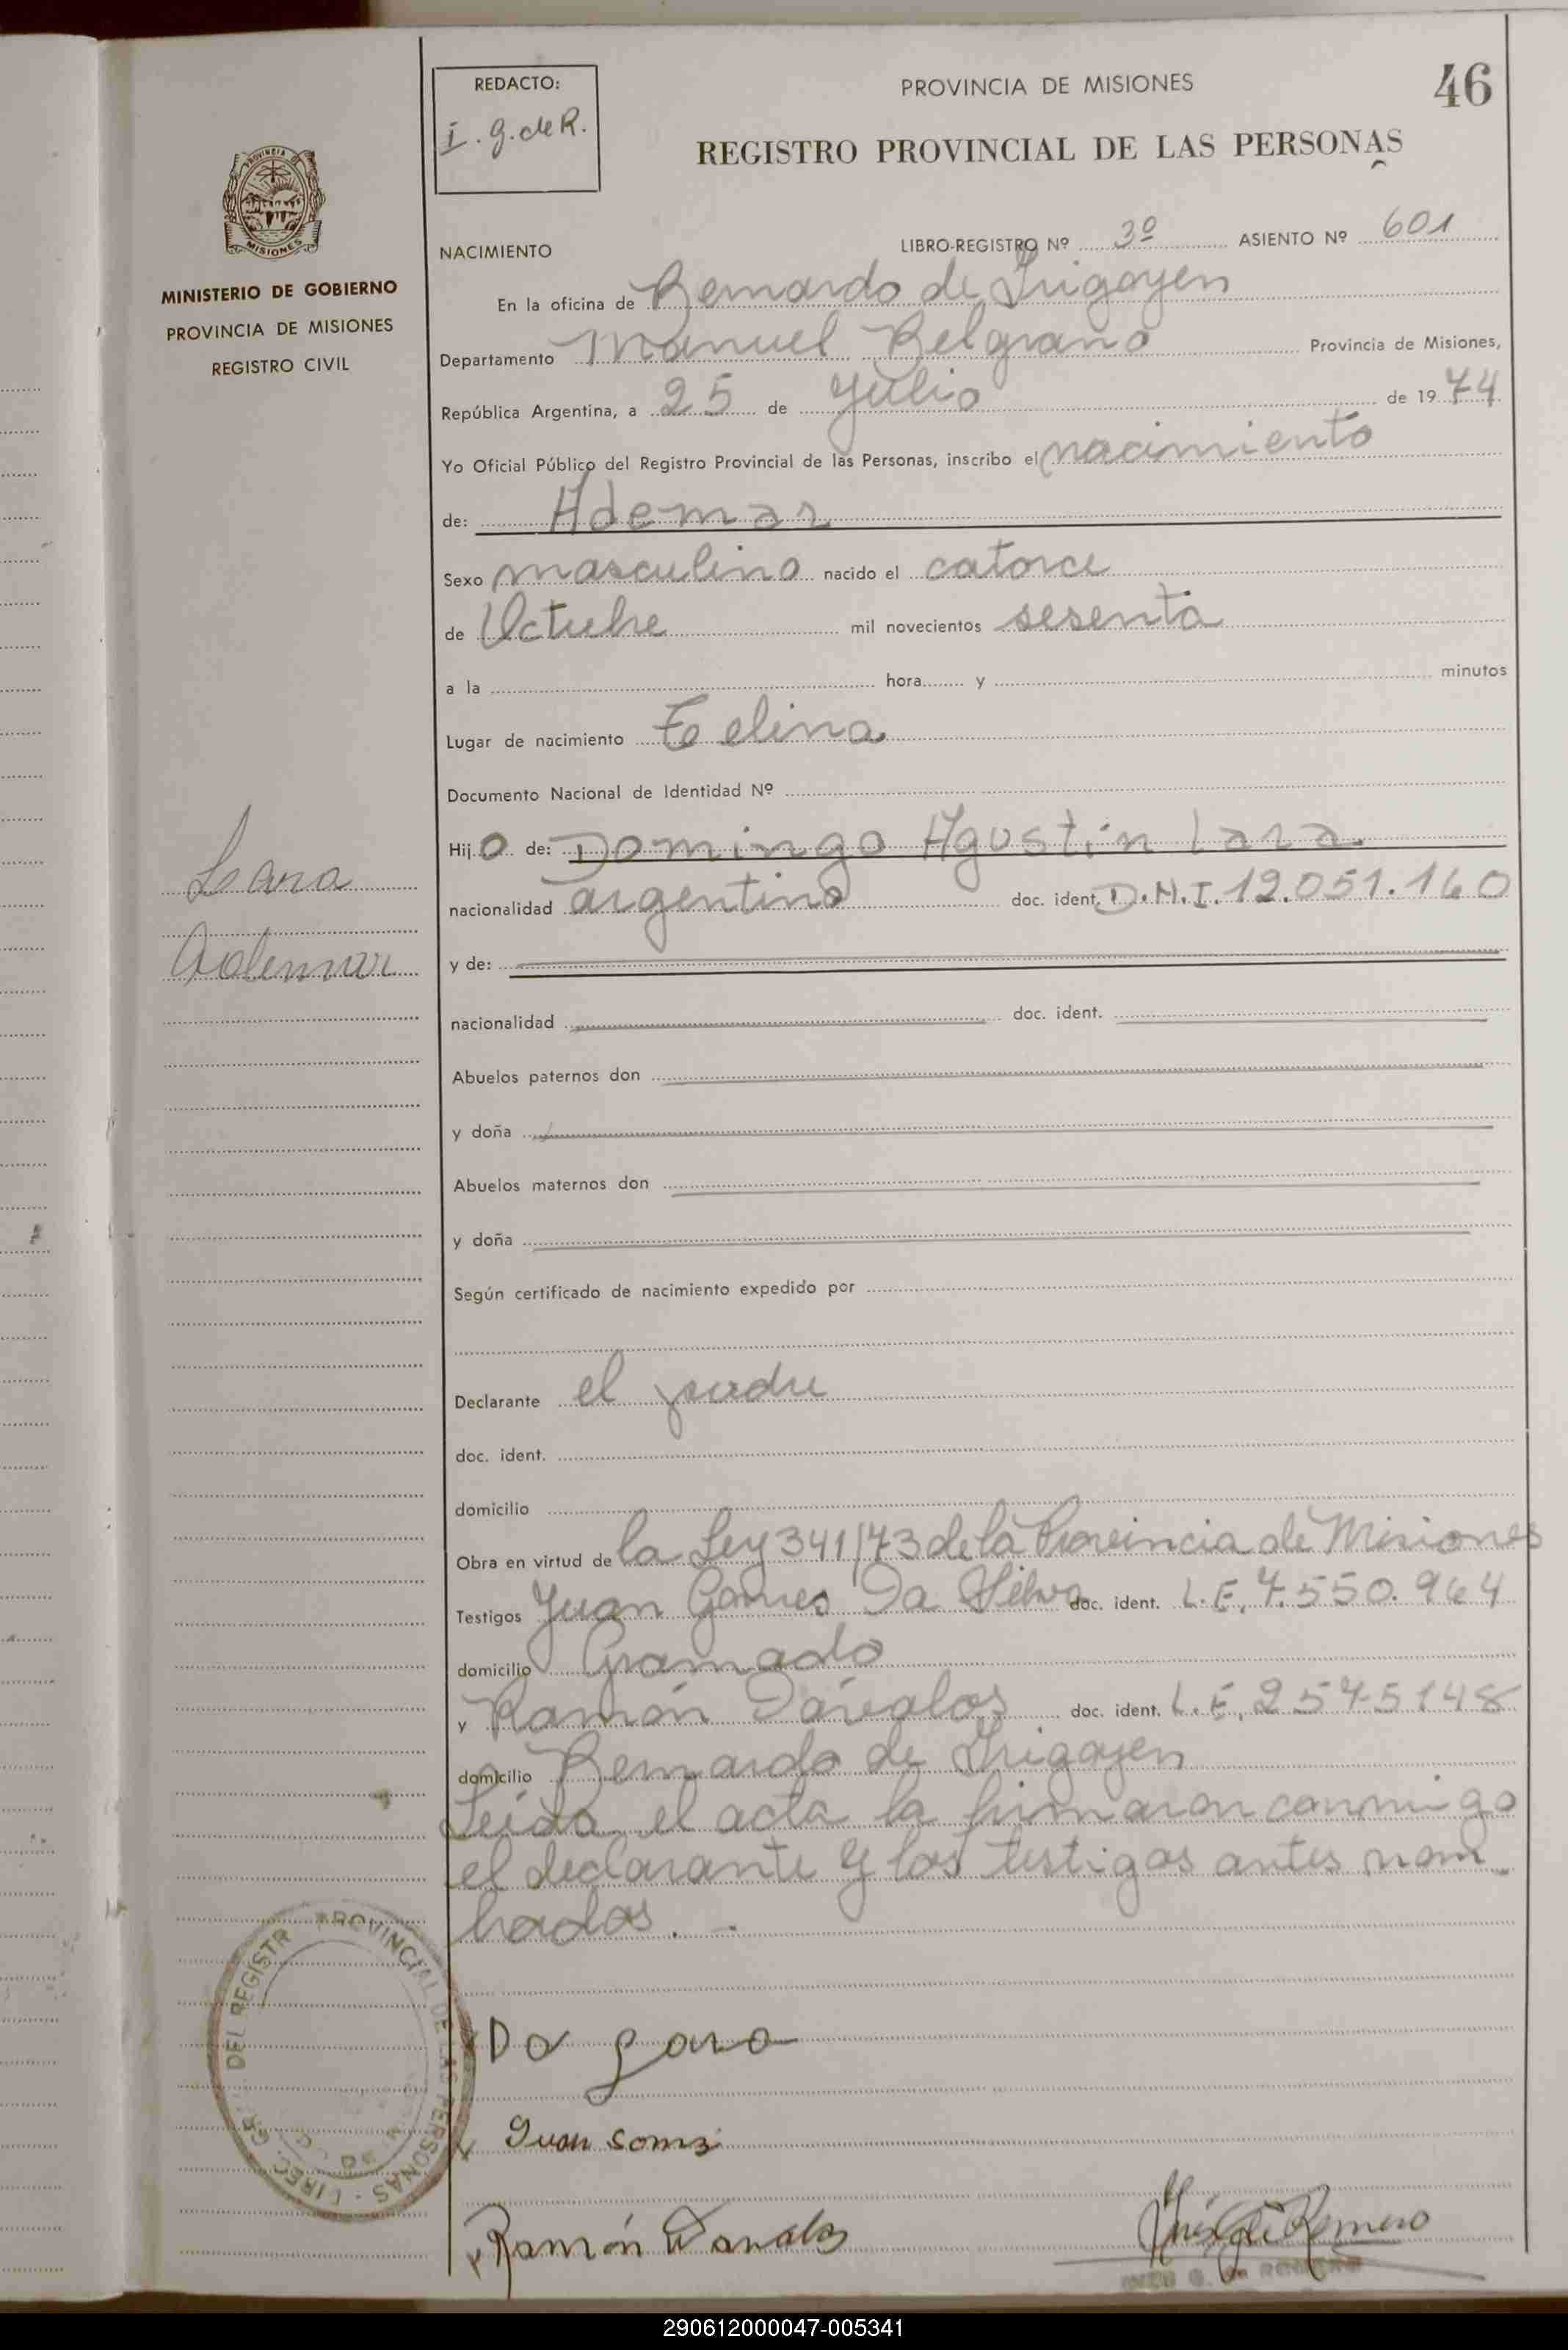 46
REDACTO:
I. g. de R.
PROVINCIA DE MISIONES
REGISTRO PROVINCIAL DE LAS PERSONAS
MISIONES
MINISTERIO DE GOBIERNO
PROVINCIA DE MISIONES
REGISTRO CIVIL
NACIMIENTO LIBRO-REGISTRO Nº 3º ASIENTO Nº 601
En la oficina de Bernardo de Irigoyen
Departamento Manuel Belgrano Provincia de Misiones,
República Argentina, a 25 de Julio de 1974
Yo Oficial Público del Registro Provincial de las Personas, inscribo el nacimiento
de: Ademar
Sexo masculino nacido el catorce
de Octubre mil novecientos sesenta
a la hora y minutos
Lugar de nacimiento
Documento Nacional de Identidad Nº
Hijo de: Domingo Agustín Lara
nacionalidad argentino doc. ident. D.N.I. 12.051.160
y de:
nacionalidad doc. ident.
Abuelos paternos don
y doña
Abuelos maternos don
y doña
Según certificado de nacimiento expedido por
Declarante el padre
doc. ident.
domicilio
Obra en virtud de la Ley 341/73 de la Provincia de Misiones
Testigos Juan Gomes Da Silva doc. ident. L.E. 7.550.964
domicilio Gramado
y Ramón Dávalos doc. ident. L.E. 2545148
domicilio Bernardo de Irigoyen
Leída el acta la firmaron conmigo
el declarante y los testigos antes nom
brados. -
Lara
Ademar
DEL REGISTR PROVINCIAL DE LAS PERSONAS
Do Lara
Juan Gomz
Ramón Davalos
Inés G. de Romero
INES G. DE ROMERO
290612000047-005341